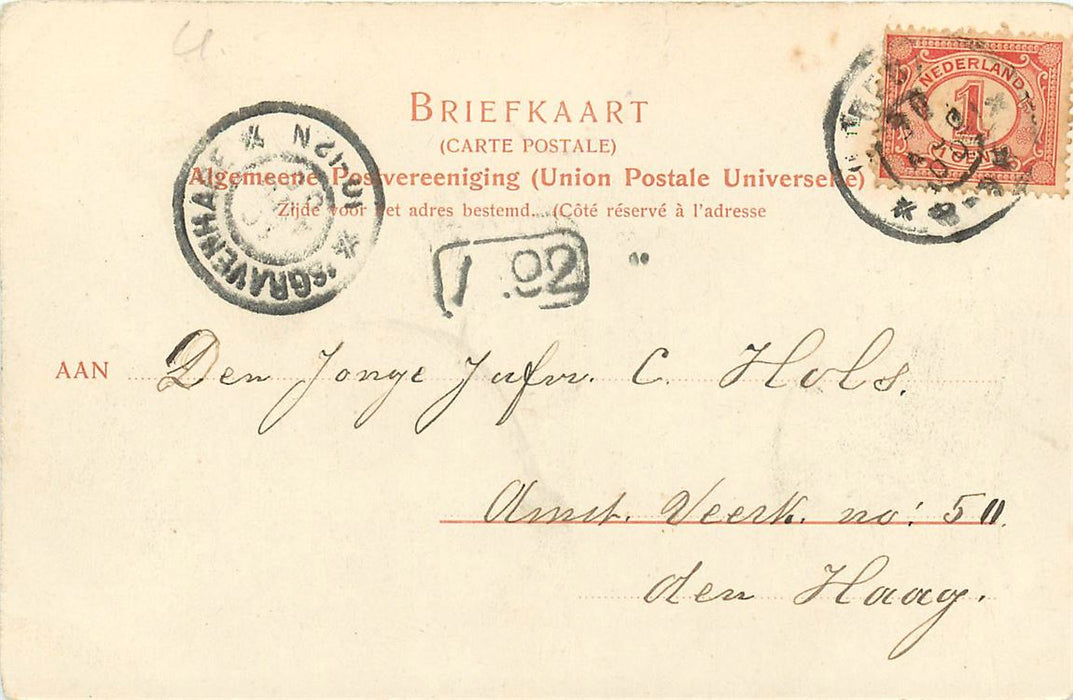 BRIEFKAART
(CARTE POSTALE)
Algemeene Postvereeniging (Union Postale Universelle)
Zijde voor het adres bestemd. (Côté réservé à l'adresse
NEDERLAND
1
CENT
'SGRAVENHAGE
10-12N
1 92
AAN Den Jonge Jufvr. C. Hols.
Amst. Veerk. no: 50
den Haag.